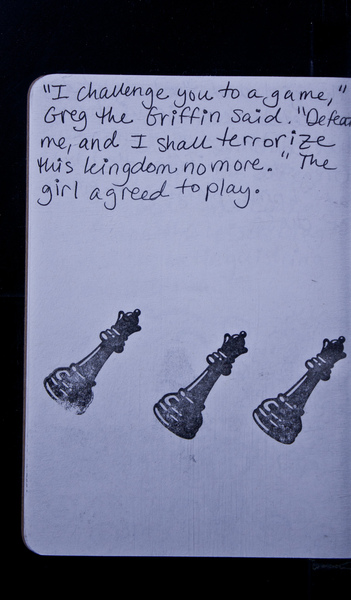 "I challenge you to a game,"
Greg the Griffin said. "Defeat
me, and I shall terrorize
this kingdom no more." The
girl agreed to play.